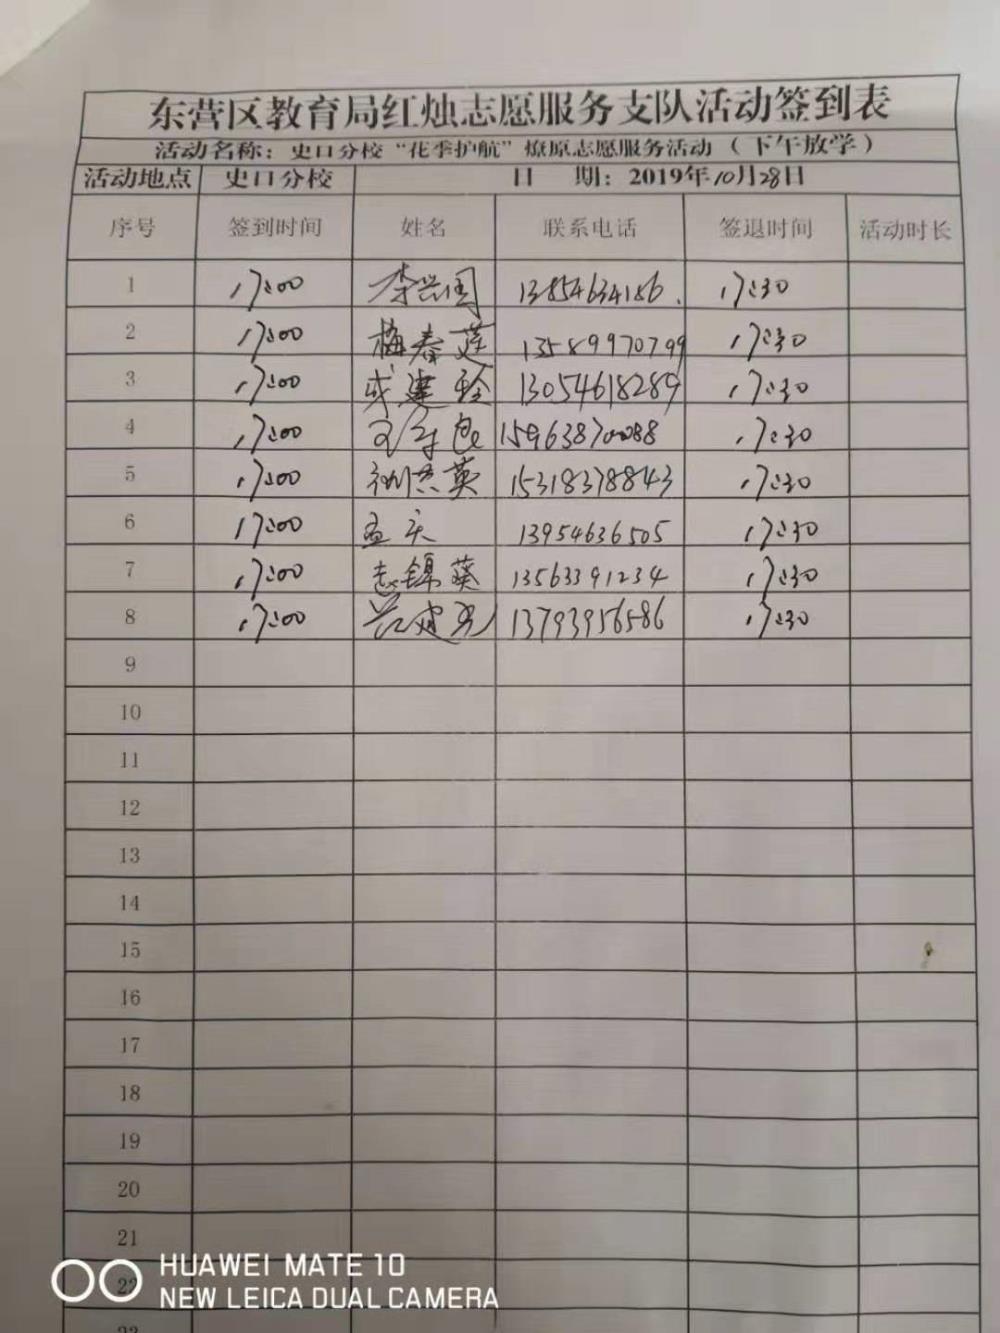 东营区教育局红烛志愿服务支队活动签到表
活动名称：史口分校“花季护航”燎原志愿服务活动（下午放学）
活动地点 史口分校 日 期：2019年10月28日
序号 签到时间 姓名 联系电话 签退时间 活动时长
1 17:00 李兴国 13854634186. 17:30
2 17:00 梅春莲 13589970799 17:30
3 17:00 成建玲 13054618289 17:30
4 17:00 15963870088 17:30
5 17:00 15318378843 17:30
6 17:00 孟庆 13954636505 17:30
7 17:00 锦葵 13563391234 17:30
8 17:00 13793956586 17:30
9
10
11
12
13
14
15
16
17
18
19
20
21
22
23
HUAWEI MATE 10
NEW LEICA DUAL CAMERA